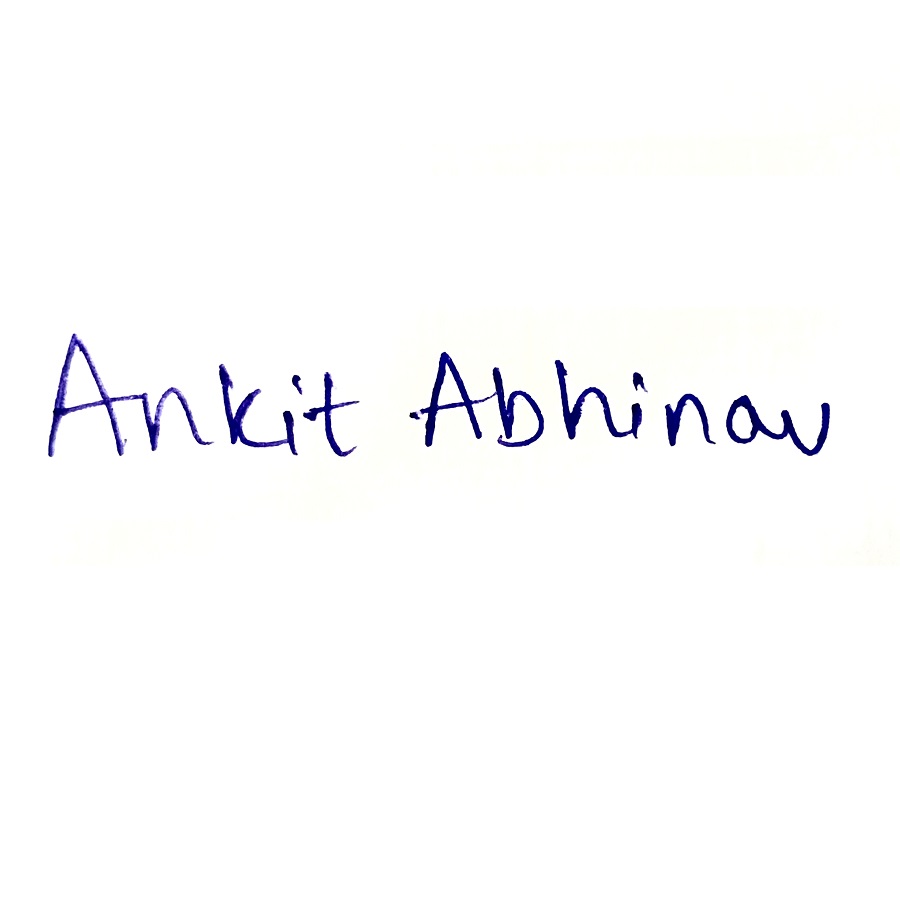 Ankit Abhinav